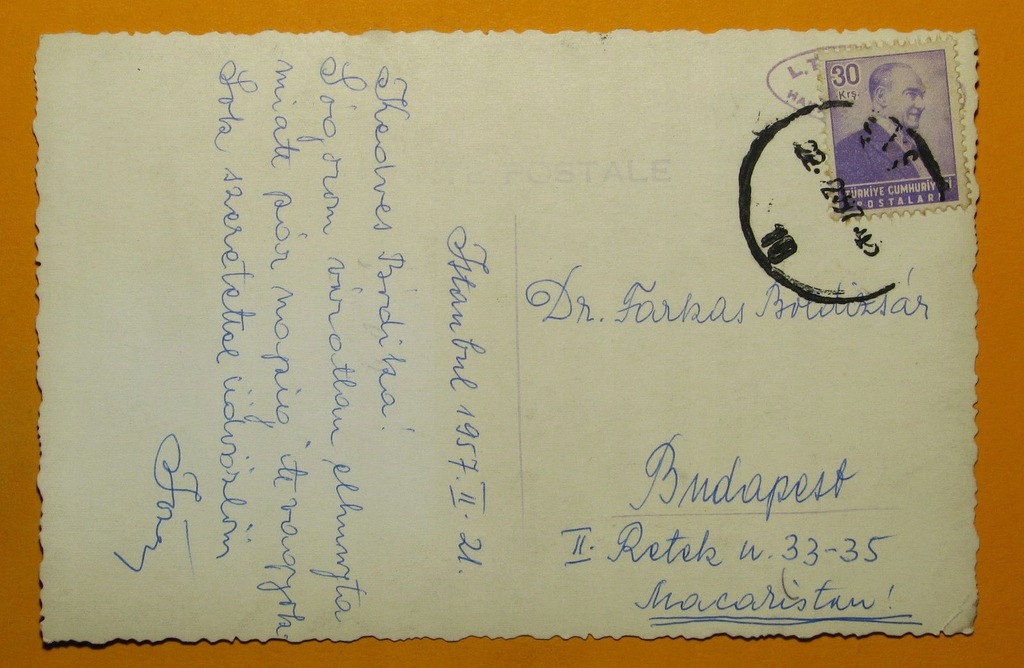 Istanbul 1957. II. 21.
Kedves Bódika!
Sógorom váratlan elhunyta
miatt pár napig itt vagyok.
Sok szeretettel üdvözlöm
POSTALE
L.T.
HA
30
Krş
TÜRKİYE CUMHURİYETİ
POSTALARI
22.
Dr. Farkas Boldizsár
Budapest
II. Retek u. 33-35
Macaristan!